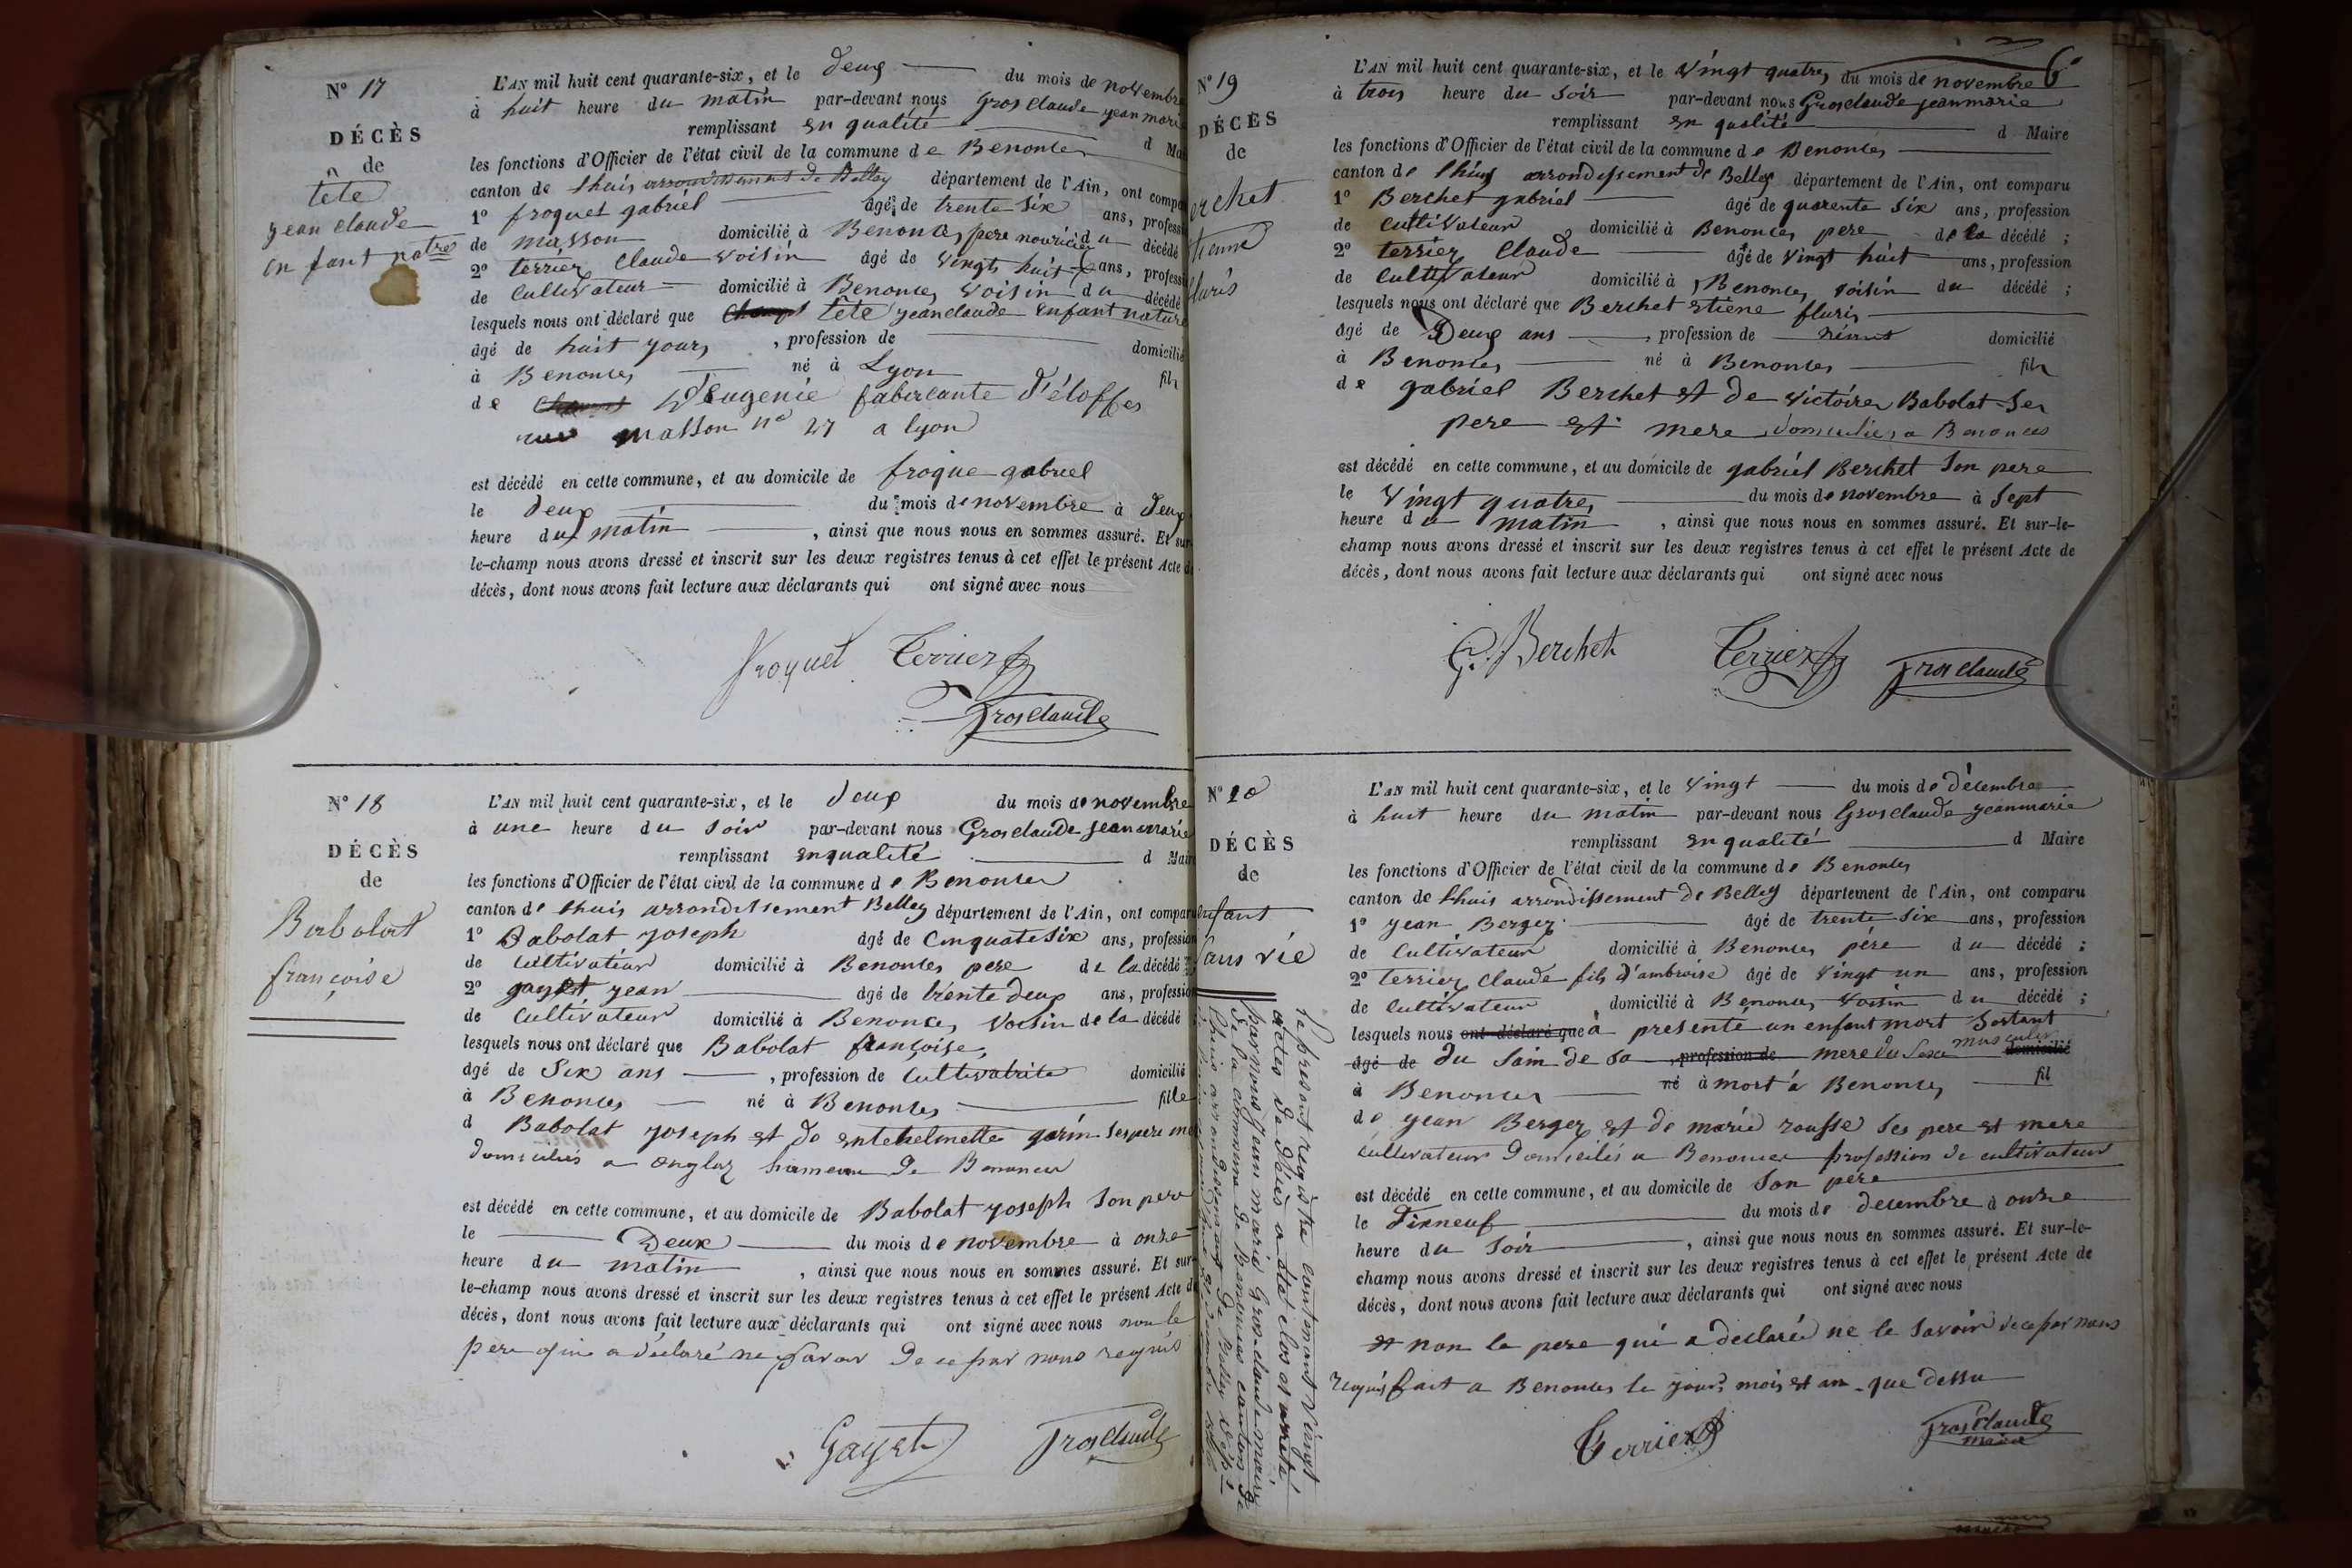 N° 17
DÉCÈS
de
tête
jean claude
enfant natre
L'AN mil huit cent quarante-six, et le deux du mois de novembre
à huit heure du matin par-devant nous Grosclaude jean marie
remplissant en qualité d Mai
les fonctions d'Officier de l'état civil de la commune de Benonces
canton de Lhuis arrondissement de Belley département de l'Ain, ont compa
1° froquet gabriel âgé de trente six ans, profess
de masson domicilié à Benonces pere nouricier du décédé
2° terrier Claude voisin âgé de vingt huit ans, profess
de Cultivateur domicilié à Benonces voisin du décédé
lesquels nous ont déclaré que tête jeanclaude enfant nature
âgé de huit jours, profession de domicilié
à Benonces né à Lyon fils
de d'Eugenie fabricante d'étoffes
rue masson n° 27 a lyon
est décédé en cette commune, et au domicile de froque gabriel
le deux du mois de novembre à deux
heure du matin, ainsi que nous nous en sommes assuré. Et sur
le-champ nous avons dressé et inscrit sur les deux registres tenus à cet effet le présent Acte d
décès, dont nous avons fait lecture aux déclarants qui ont signé avec nous
froquet Terrier
Grosclaude
N° 18
DÉCÈS
de
Babolat
françoise
L'AN mil huit cent quarante-six, et le deux du mois de novembre
à une heure du soir par-devant nous Grosclaude jean marie
remplissant en qualité d Maire
les fonctions d'Officier de l'état civil de la commune de Benonces
canton de Lhuis arrondissement Belley département de l'Ain, ont comparu
1° Babolat joseph âgé de Cinquate six ans, profession
de cultivateur domicilié à Benonces pere de la décédé
2° gayet jean âgé de trente deux ans, profession
de Cultivateur domicilié à Benonces voisin de la décédé
lesquels nous ont déclaré que Babolat françoise
âgé de Six ans, profession de Cultivatrite domicilié
à Benonces né à Benonces fille
d Babolat joseph et de garin ses pere me
domiciliés a onglaz hameau de Benonces
est décédé en cette commune, et au domicile de Babolat joseph son pere
le Deux du mois de novembre à onze
heure du matin, ainsi que nous nous en sommes assuré. Et sur-
le-champ nous avons dressé et inscrit sur les deux registres tenus à cet effet le présent Acte de
décès, dont nous avons fait lecture aux déclarants qui ont signé avec nous non le
pere qui a déclaré ne savoir de ce par nous requis
Gayet Grosclaude
6
N° 19
DÉCÈS
de
erchet
tienne
fluris
L'AN mil huit cent quarante-six, et le vingt quatre du mois de novembre
à trois heure du soir par-devant nous Grosclaude jeanmarie
remplissant en qualité d Maire
les fonctions d'Officier de l'état civil de la commune de Benonces
canton de Lhuis arrondissement de Belley département de l'Ain, ont comparu
1° Berchet gabriel âgé de quarente six ans, profession
de cultivateur domicilié à Benonces pere de la décédé ;
2° terrier Claude âgé de vingt huit ans, profession
de Cultivateur domicilié à Benonces voisin du décédé ;
lesquels nous ont déclaré que Berchet etiene fluris
âgé de Deux ans, profession de néant domicilié
à Benonces né à Benonces fils
de gabriel Berchet et de victoire Babolat ses
pere et mere domiciliés a Benonces
est décédé en cette commune, et au domicile de gabriel Berchet son pere
le vingt quatre du mois de novembre à sept
heure du matin, ainsi que nous nous en sommes assuré. Et sur-le-
champ nous avons dressé et inscrit sur les deux registres tenus à cet effet le présent Acte de
décès, dont nous avons fait lecture aux déclarants qui ont signé avec nous
G. Berchet Terrier Grosclaude
N° 20
DÉCÈS
de
enfant
sans vie
L'AN mil huit cent quarante-six, et le vingt du mois de décembre
à huit heure du matin par-devant nous Grosclaude jeanmarie
remplissant en qualité d Maire
les fonctions d'Officier de l'état civil de la commune de Benonces
canton de Lhuis arrondissement de Belley département de l'Ain, ont comparu
1° jean Berger âgé de trente six ans, profession
de Cultivateur domicilié à Benonces pére du décédé ;
2° terrier Claude fils d'ambroise âgé de vingt un ans, profession
de Cultivateur domicilié à Benonces voisin du décédé ;
lesquels nous ont déclaré que à presenté un enfant mort sortant
âgé de du sain de sa, profession de mere du sexe masculin domicilié
à Benonces né à mort a Benonces fil
de jean Berger et de marie rousse ses pere et mere
cultivateur domicilés a Benonces profession de cultivateur
est décédé en cette commune, et au domicile de son pere
le dixneuf du mois de decembre à onze
heure du soir, ainsi que nous nous en sommes assuré. Et sur-le-
champ nous avons dressé et inscrit sur les deux registres tenus à cet effet le présent Acte de
décès, dont nous avons fait lecture aux déclarants qui ont signé avec nous
et non le pere qui a declarée ne le savoir de ce par nous
requis fait a Benonces le jour, mois et an que dessu
Terrier Grosclaude
maire
Le présent registre contenant vingt
actes de décès a été clos et arreté
par nous jean marie Grosclaude maire
de la commune de Benonces canton de
Lhuis arrondissement de Belley